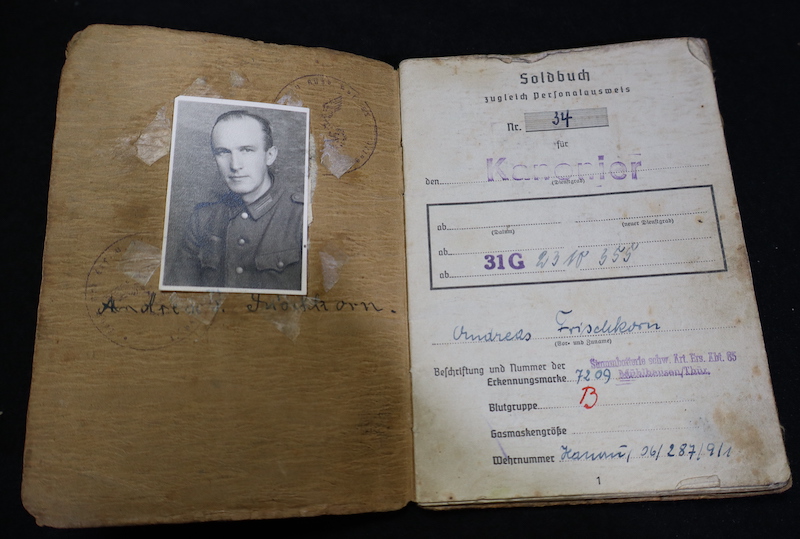 Andreas Frischkorn.
Soldbuch
zugleich Personalausweis
Nr. 34
für
den Kanonier
(Dienstgrad)
ab
(Datum) (neuer Dienstgrad)
ab
ab 31G 25 10 355
Andreas Frischkorn
(Vor- und Zuname)
Beschriftung und Nummer der Stammbatterie schw. Art. Ers. Abt. 65
Erkennungsmarke 7209 Mühlhausen/Thür.
Blutgruppe B
Gasmaskengröße
Wehrnummer Hanau, 06/287/9/1
1